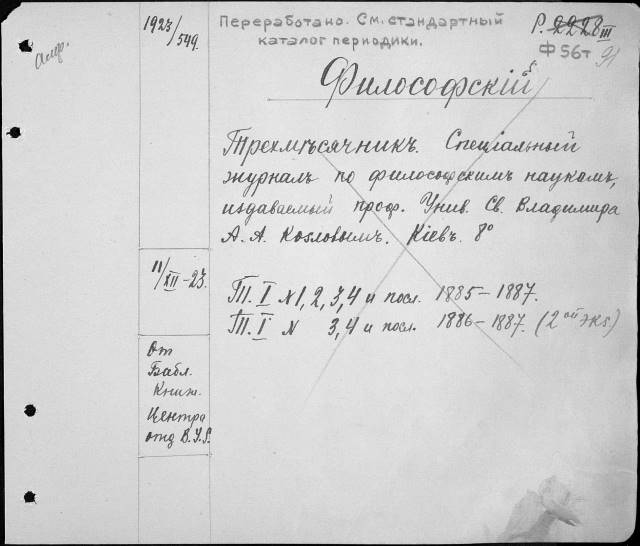 1923/549.
Переработано. См. стандартный
каталог периодики.
Р. 2228 III
Ф 56т
Философскій
Трехмѣсячникъ. Спеціальный
журналъ по философскимъ наукамъ,
издаваемый проф. Унив. Св. Владимира
А. А. Козловымъ. Кіевъ. 8°
11/XII-23.
Т. I № 1, 2, 3, 4 и посл. 1885-1887.
Т. I № 3, 4 и посл. 1886-1887. (2ой экз.)
От
Библ.
Книж.
Центра
отд